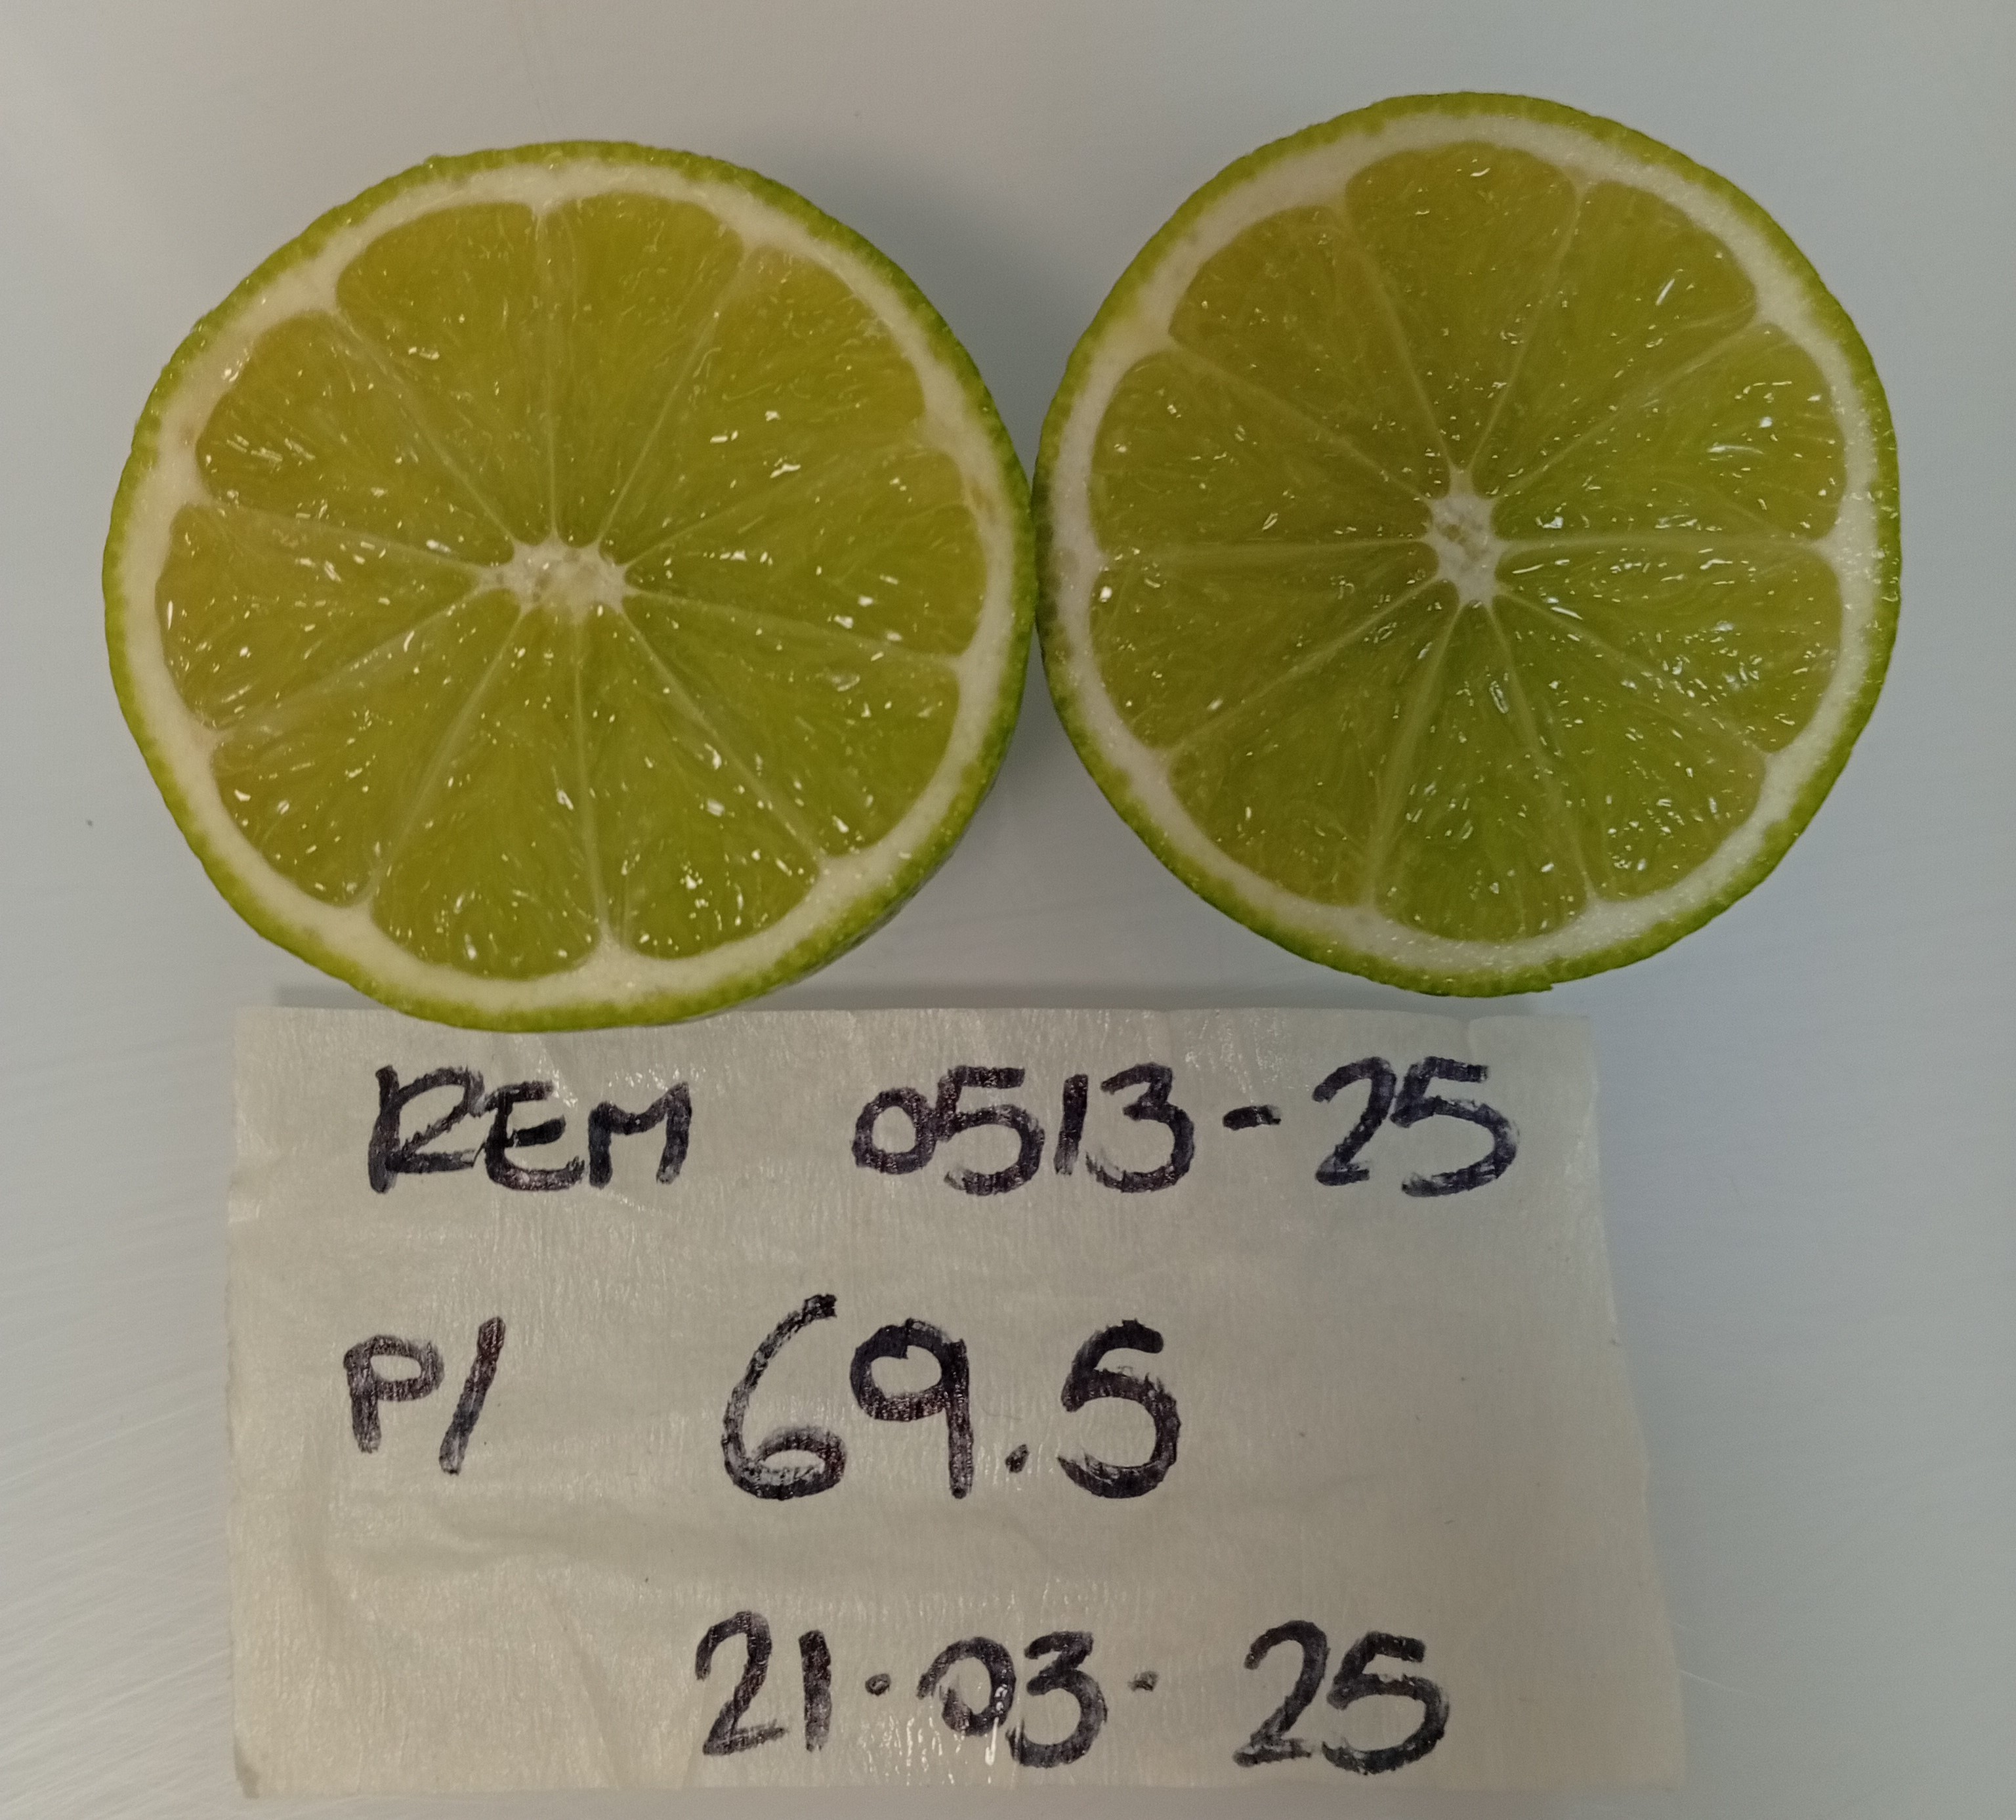 REM 0513-25
P/ 69.5
21·03·25